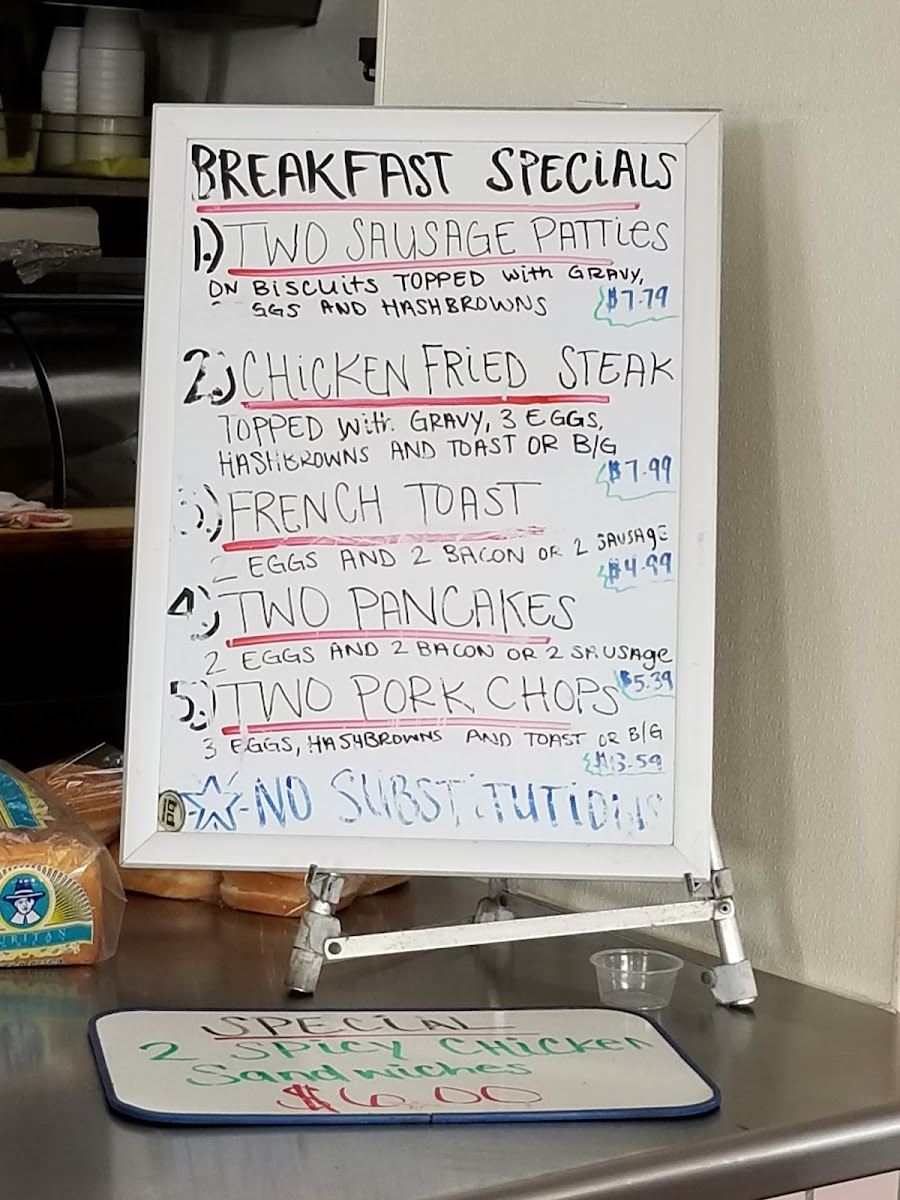 BREAKFAST SPECiALS
1.) TWO SAUSAGE PATTies
ON BiSCUitS TOPPED with GRAVY,
AND HASHBROWNS
$7.79
2.) CHiCKEN FRiED STEAK
TOPPED with GRAVY, 3 EGGS,
HASHBROWNS AND TOAST OR B/G
$7.99
3.) FRENCH TOAST
2 EGGS AND 2 BACON OR 2 SAUSAGE
$4.99
4.) TWO PANCAKES
2 EGGS AND 2 BACON OR 2 SAUSAge
$5.39
5.) TWO PORK CHOPS
3 EGGS, HASHBROWNS AND TOAST OR B/G
NO SUBSTiTUTiONS
SPECIAL
2 SPICY CHICKEN
Sandwiches
$6.00